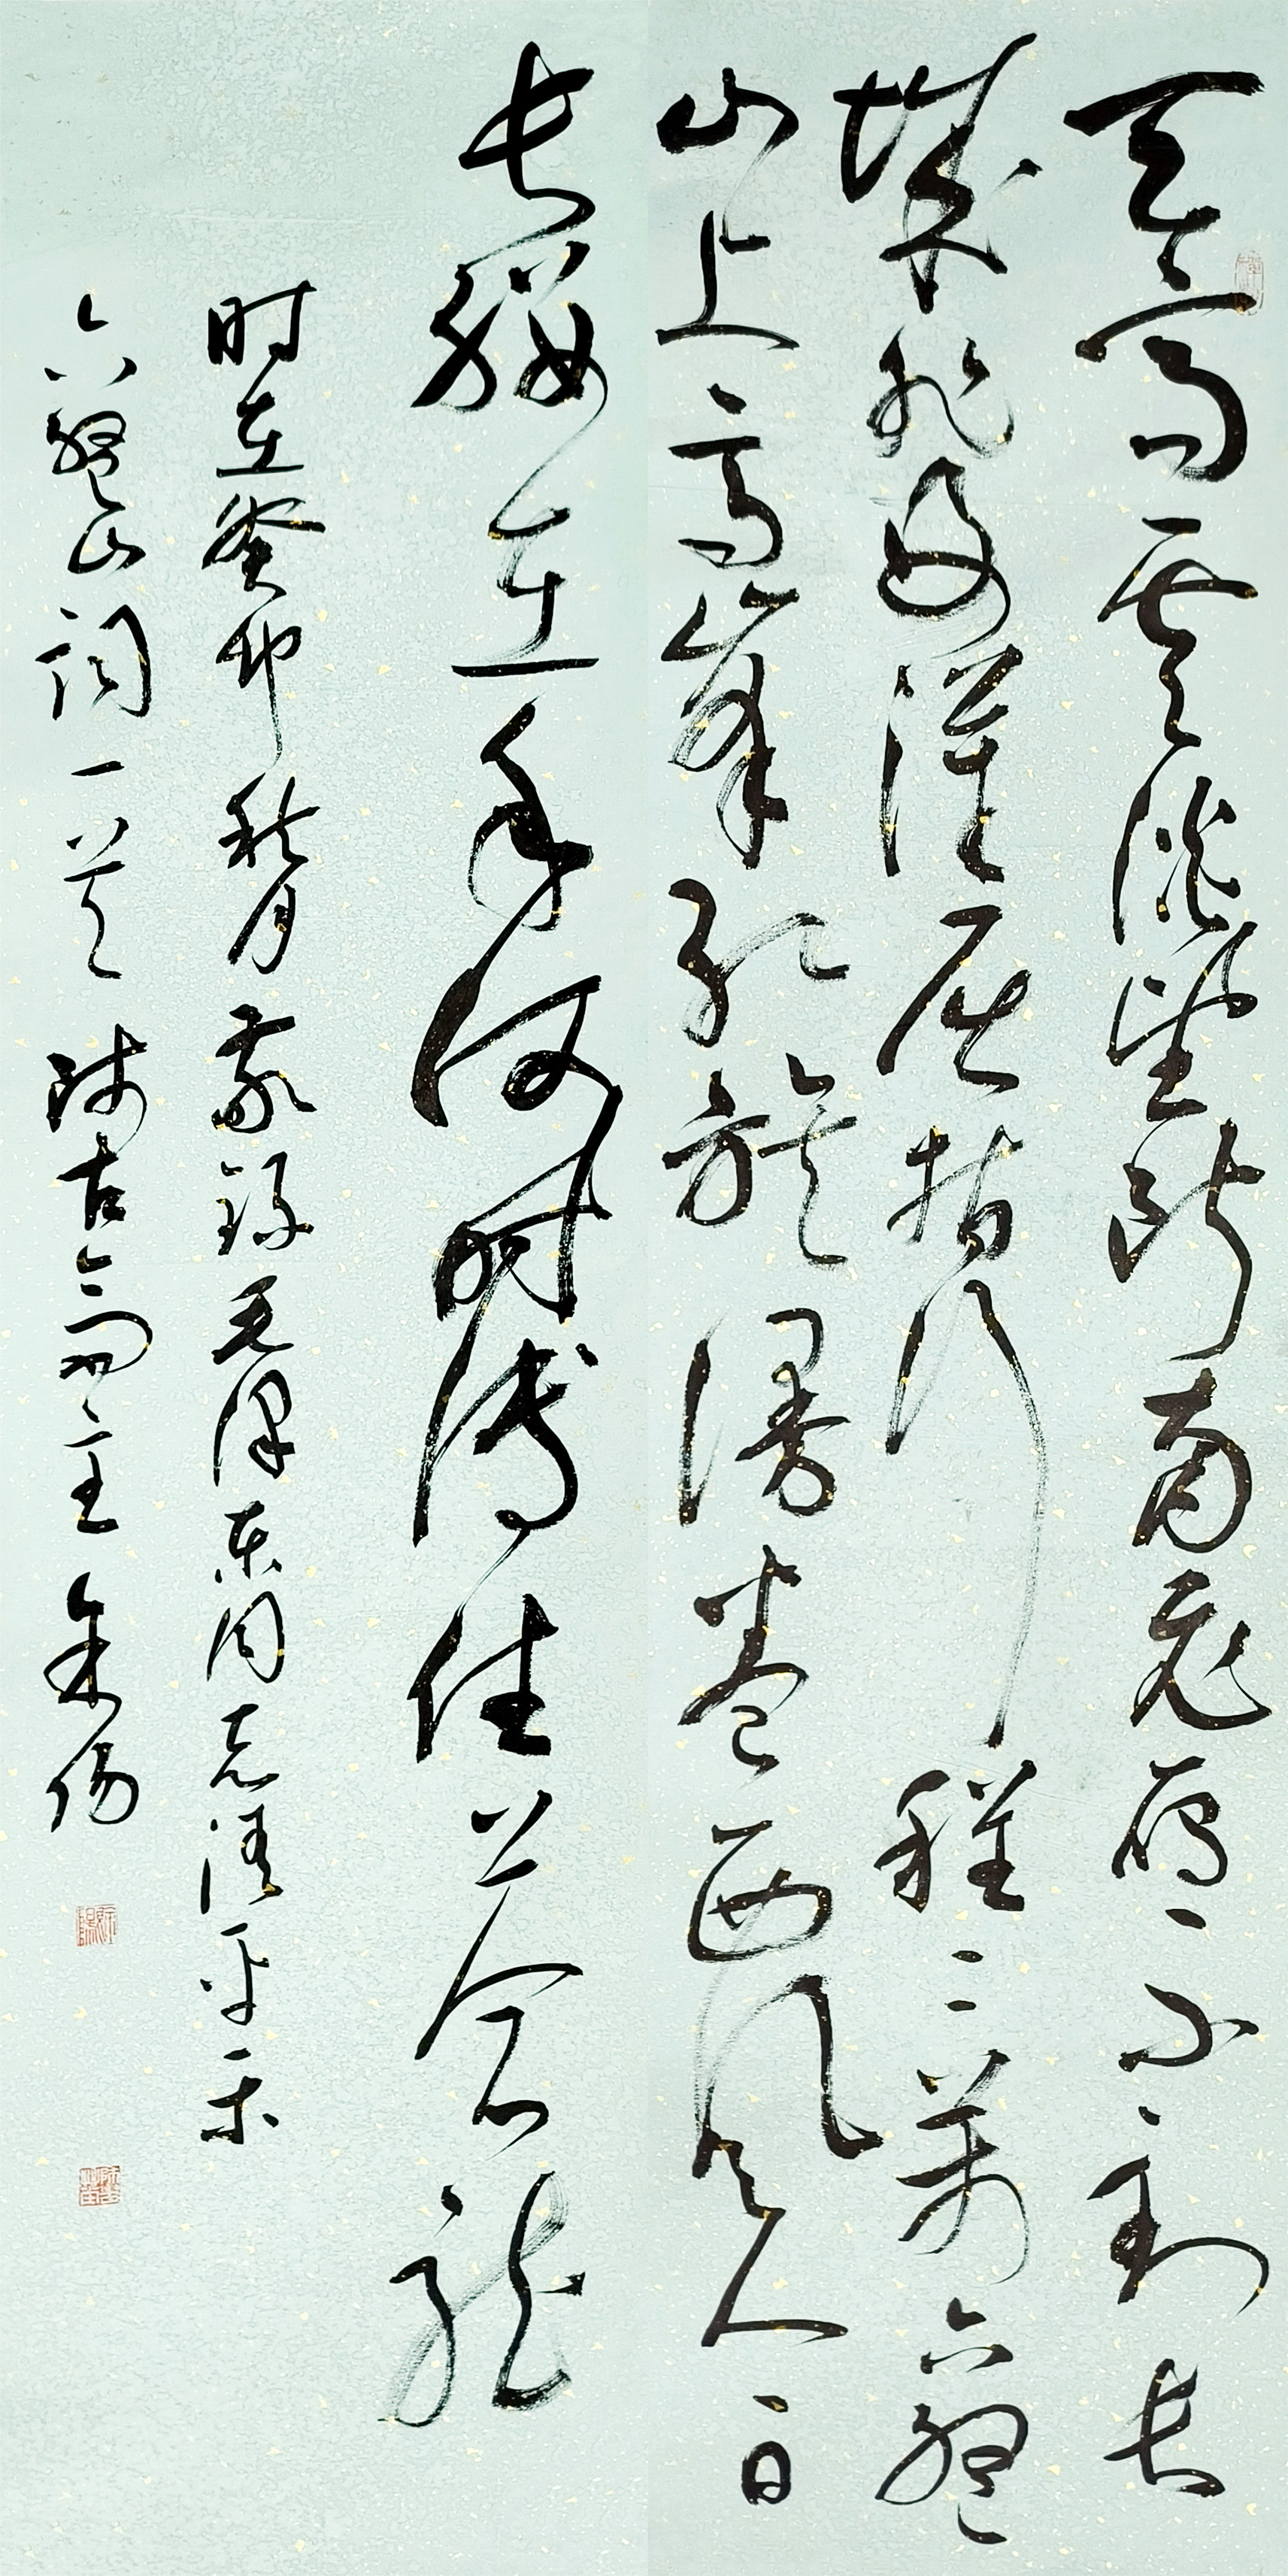 天高云淡望断南飞雁不到长
城非好汉屈指行程二万六盘
山上高峰红旗漫卷西风今日
长缨在手何时缚住苍龙
时在癸卯秋月敬录毛泽东同志清平乐
六盘山词一首 师古斋主